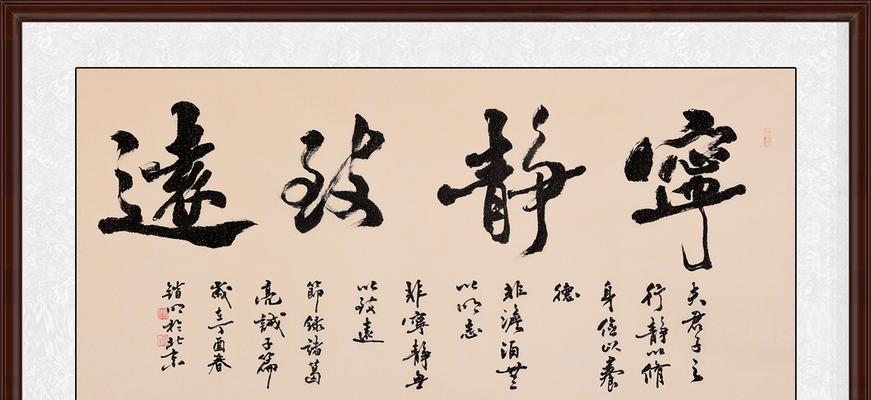 寧靜致遠
夫君子之
行靜以脩
身儉以養
德
非澹泊無
以明志
非寧靜無
以致遠
節錄諸葛
亮誡子篇
歲在丁酉春
明於北京